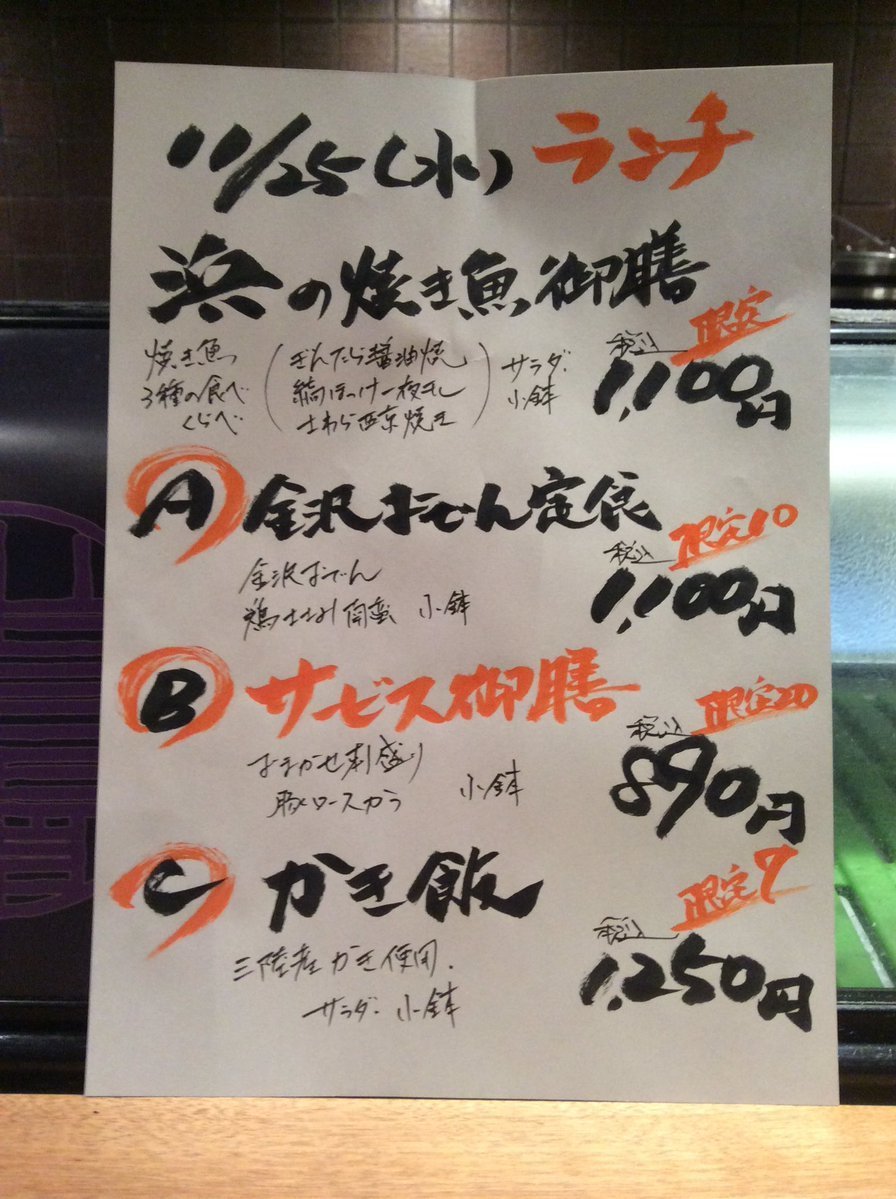 11/25(水) ランチ
浜の焼き魚御膳 限定
焼き魚 3種の食べくらべ
(ぎんたら醤油焼
縞ほっけ一夜干し
さわら西京焼き)
サラダ・
小鉢
税込 1,100円
A 金沢おでん定食 限定10
金沢おでん
鶏ささみ南蛮 小鉢
税込 1,100円
B サービス御膳 限定20
おまかせ刺盛り
豚ロースカラ 小鉢
税込 890円
C かき飯 限定7
三陸産かき使用.
サラダ・小鉢
税込 1,250円